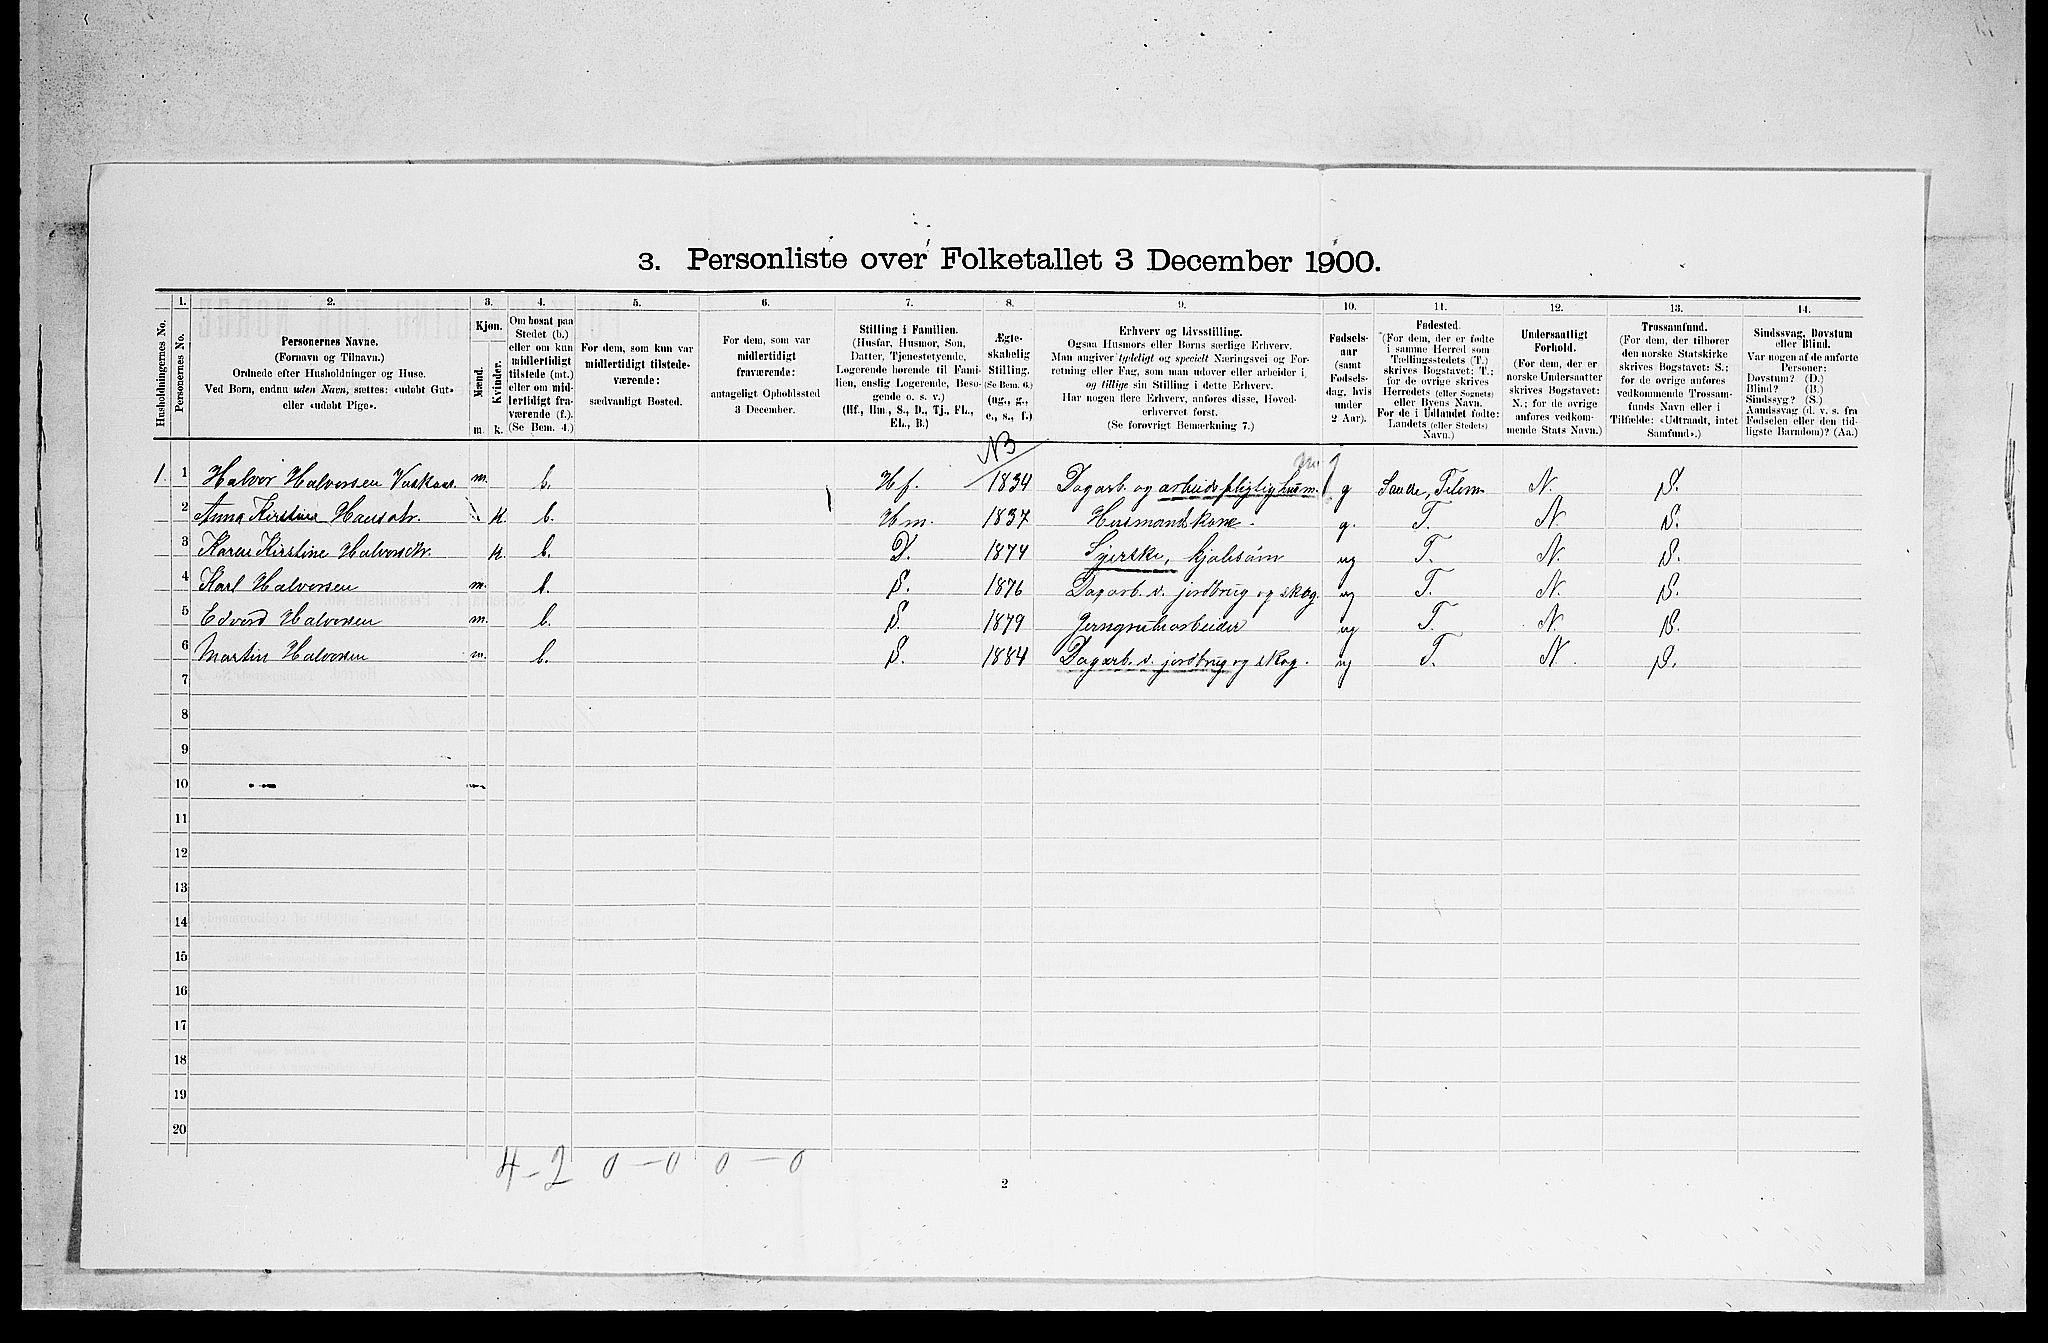 3. Personliste over Folketallet 3 December 1900.
Husholdningernes No.
1.
Personernes No.
2.
Personernes Navne.
(Fornavn og Tilnavn.)
Ordnede efter Husholdninger og Huse.
Ved Børn, endnu uden Navn, sættes: «udøbt Gut»
eller «udøbt Pige».
3.
Kjøn.
Mænd.
Kvinder.
m. k.
4.
Om bosat paa
Stedet (b.)
eller om kun
midlertidigt
tilstede (mt.)
eller om mid-
lertidigt fra-
værende (f.).
(Se Bem. 4.)
5.
For dem, som kun var
midlertidigt tilstede-
værende:
sædvanligt Bosted.
6.
For dem, som var
midlertidigt
fraværende:
antageligt Opholdssted
3 December.
7.
Stilling i Familien.
(Husfar, Husmor, Søn,
Datter, Tjenestetyende,
Logerende hørende til Fami-
lien, enslig Logerende, Besø-
gende o. s. v.)
(Hf., Hm., S., D., Tj., FL.,
EL., B.)
8.
Ægte-
skabelig
Stilling.
(Se Bem. 6.)
(ug., g.,
e., s., f.)
9.
Erhverv og Livsstilling.
Ogsaa Husmors eller Børns særlige Erhverv.
Man angiver tydeligt og specielt Næringsvei og For-
retning eller Fag, som man udøver eller arbeider i,
og tillige sin Stilling i dette Erhverv.
Har nogen flere Erhverv, anføres disse, Hoved-
erhvervet først.
(Se forøvrigt Bemerkning 7.)
10.
Fødsels-
aar
(samt
Fødsels-
dag, hvis
under
2 Aar).
11.
Fødested.
(For dem, der er fødte
i samme Herred som
Tællingsstedets (T.)
skrives Bogstavet: T.;
for de øvrige skrives
Herredets (eller Sognets)
eller Byens Navn.
For de i Udlandet fødte:
Landets (eller Stedets)
Navn.)
12.
Undersaatligt
Forhold.
(For dem, der er
norske Undersaatter
skrives Bogstavet:
N.; for de øvrige
anføres vedkom-
mende Stats Navn.)
13.
Trossamfund.
(For dem, der tilhører
den norske Statskirke
skrives Bogstavet: S.;
for de øvrige anføres
vedkommende Trossam-
funds Navn eller i
Tilfælde: «Udtraadt, intet
Samfund».)
14.
Sindssvag, Døvstum
eller Blind.
Var nogen af de anførte
Personer:
Døvstum? (D.)
Blind? (B.)
Sindssyg? (S.)
Aandssvag (d. v. s. fra
Fødselen eller den tid-
ligste Barndom)? (Aa.)
NB
1. 1 Halvor Halvorsen Vaskaas m. b. Hf. 1834 Dagarb. og arbeidspligtig husm. g Saude, Telem. N. S.
2 Anna Kirstine Hansdtr. k. b. Hm. 1837 Husmandskone. g. T. N. S.
3 Karen Kirstine Halvorsdtr. k. b. D. 1874 Syerske, kjolesøm ug T. N. S.
4 Karl Halvorsen m. b. S. 1876 Dagarb. v. jordbrug og skog. ug T. N. S.
5 Edvard Halvorsen m. b. S. 1879 Jerngrubearbeider ug T. N. S.
6 Martin Halvorsen m. b. S. 1884 Dagarb. v. jordbrug og skog. ug T. N. S.
7
8
9
10
11
12
13
14
15
16
17
18
19
20
4-2 0-0 0-0
2